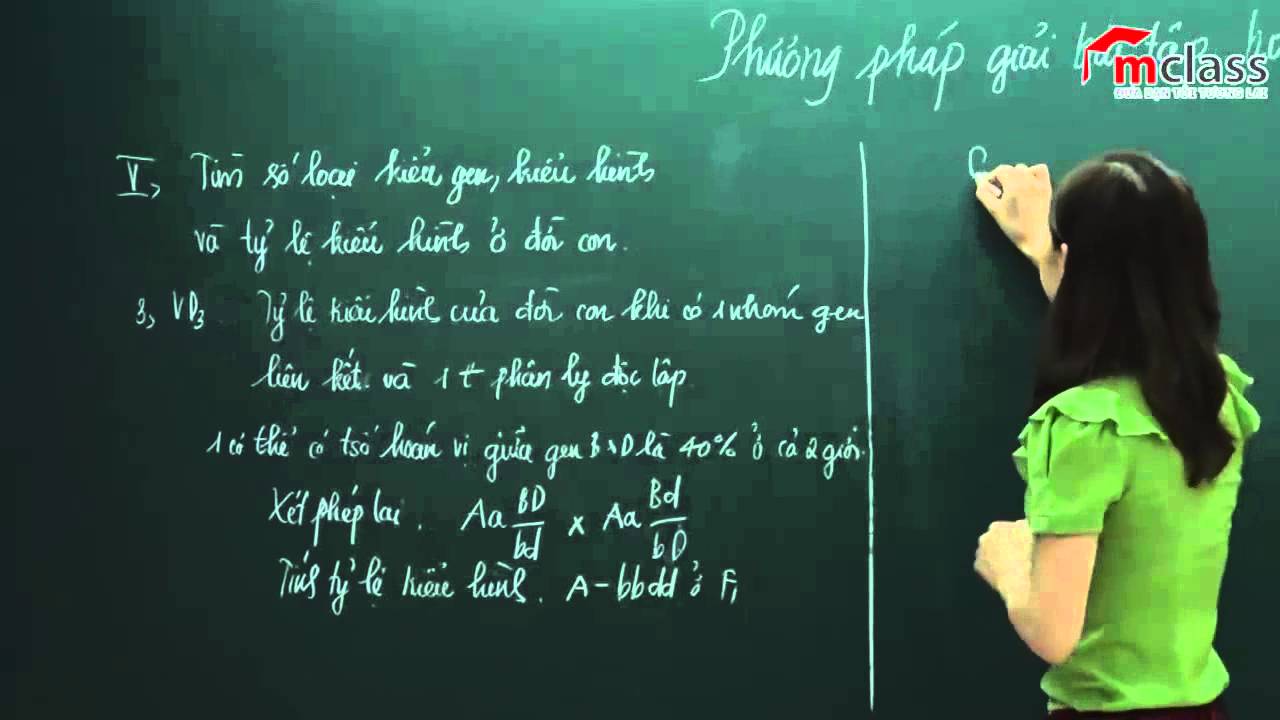 Phương pháp giải bài tập ho
mclass
ĐƯA BẠN TỚI TƯƠNG LAI
V, Tìm số loại kiểu gen, kiểu hình
và tỷ lệ kiểu hình ở đời con.
3, VD3 Tỷ lệ kiểu hình của đời con khi có 1 nhóm gen
liên kết và 1 tt phân ly độc lập
1 có thể có tsố hoán vị giữa gen B và D là 40% ở cả 2 giới.
Xét phép lai. Aa BD/bd x Aa Bd/bD
Tính tỷ lệ kiểu hình. A-bbdd ở F1